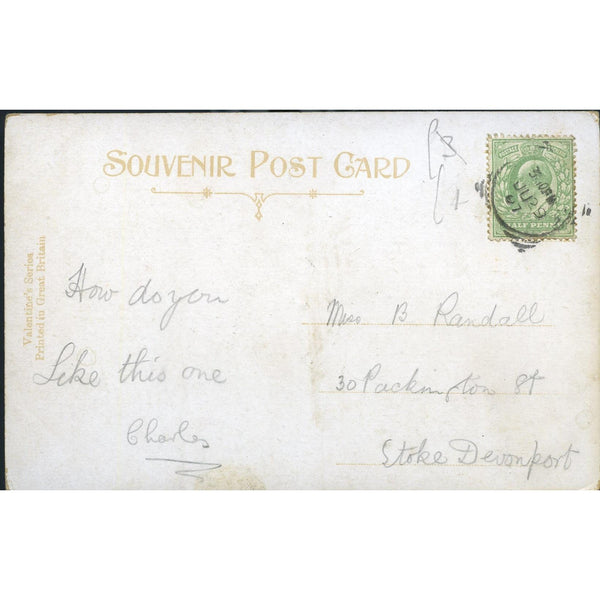 SOUVENIR POST CARD
Valentine's Series
Printed in Great Britain
How do you
Like this one
Charles
Miss B Randall
30 Packington St
Stoke Devonport
HALF PENNY
JU 29
07